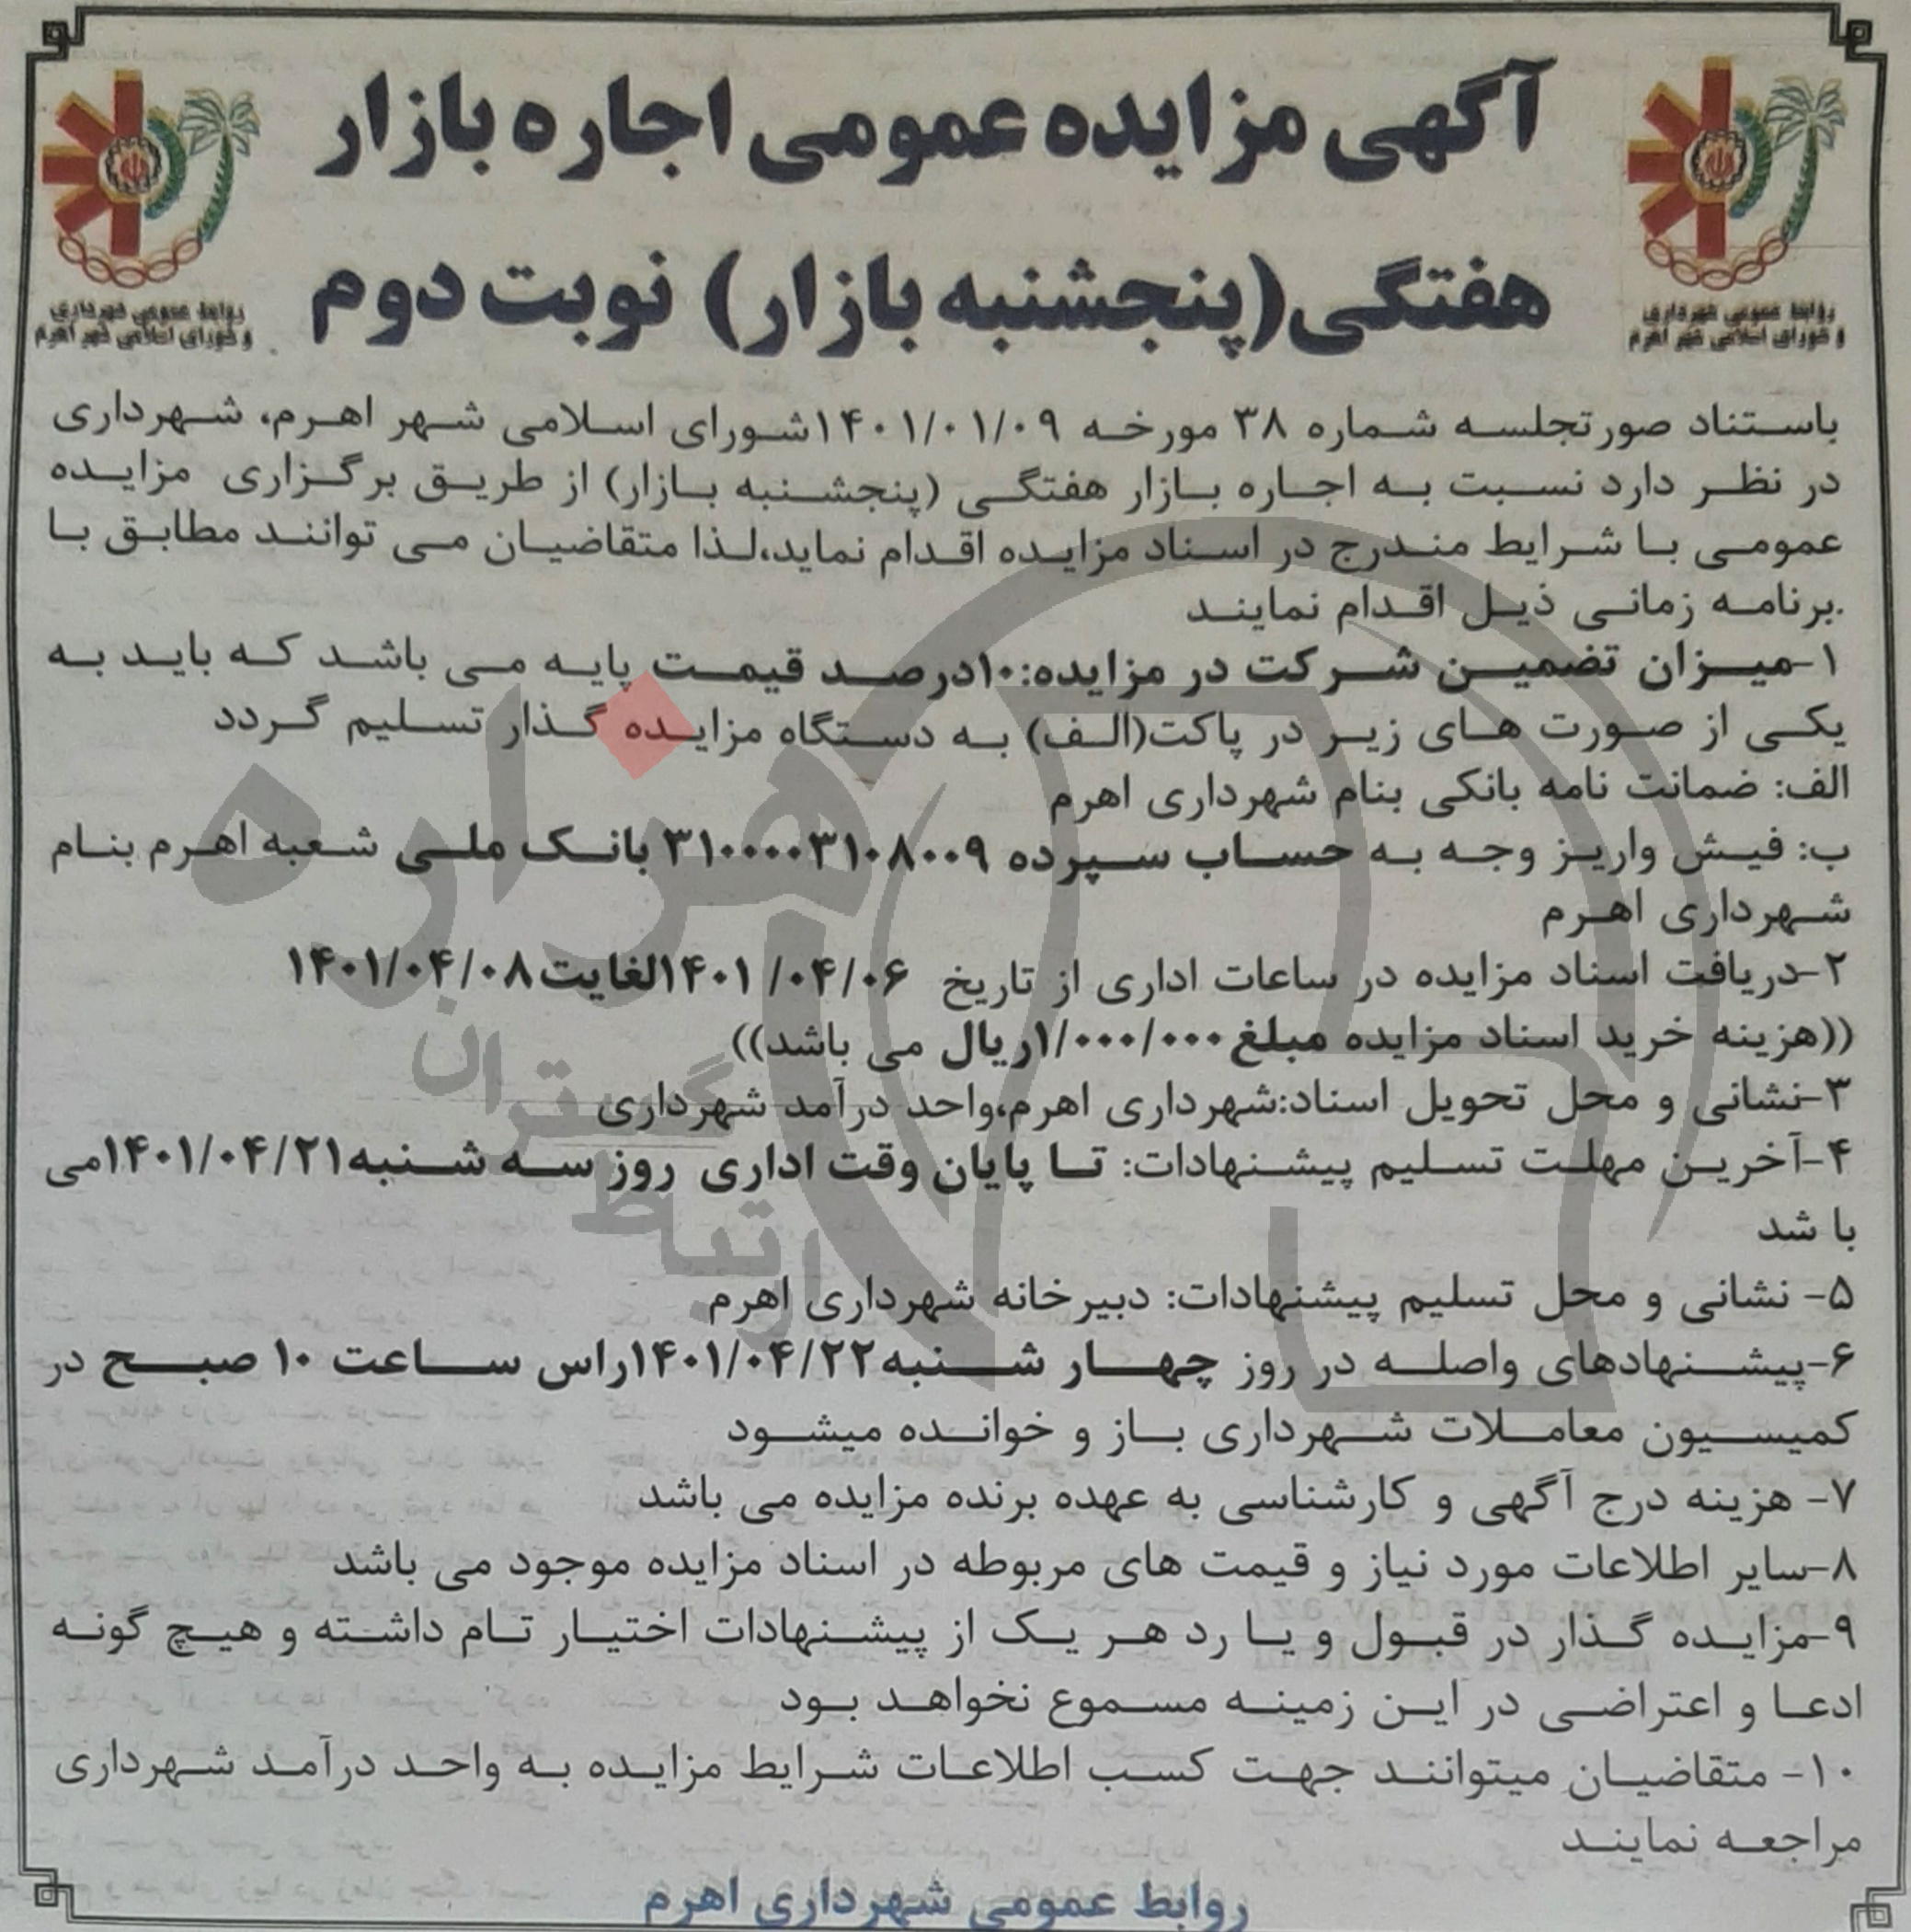 آگهی مزایده عمومی اجاره بازار
هفتگی(پنجشنبه بازار) نوبت دوم
روابط عمومی شهرداری
و شورای اسلامی شهر اهرم
روابط عمومی شهرداری
و شورای اسلامی شهر اهرم
باستناد صورتجلسه شماره ۳۸ مورخه ۱۴۰۱/۰۱/۰۹شورای اسلامی شهر اهرم، شهرداری
در نظر دارد نسبت به اجاره بازار هفتگی (پنجشنبه بازار) از طریق برگزاری مزایده
عمومی با شرایط مندرج در اسناد مزایده اقدام نماید،لذا متقاضیان می توانند مطابق با
.برنامه زمانی ذیل اقدام نمایند
۱-میزان تضمین شرکت در مزایده:۱۰درصد قیمت پایه می باشد که باید به
یکی از صورت های زیر در پاکت(الف) به دستگاه مزایده گذار تسلیم گردد
الف: ضمانت نامه بانکی بنام شهرداری اهرم
ب: فیش واریز وجه به حساب سپرده ۳۱۰۰۰۰۳۱۰۸۰۰۹ بانک ملی شعبه اهرم بنام
شهرداری اهرم
۲-دریافت اسناد مزایده در ساعات اداری از تاریخ ۱۴۰۱/۰۴/۰۶لغایت۱۴۰۱/۰۴/۰۸
((هزینه خرید اسناد مزایده مبلغ۱/۰۰۰/۰۰۰ریال می باشد))
۳-نشانی و محل تحویل اسناد:شهرداری اهرم،واحد درآمد شهرداری
۴-آخرین مهلت تسلیم پیشنهادات: تا پایان وقت اداری روز سه شنبه۱۴۰۱/۰۴/۲۱می
با شد
۵- نشانی و محل تسلیم پیشنهادات: دبیرخانه شهرداری اهرم
۶-پیشنهادهای واصله در روز چهار شنبه۱۴۰۱/۰۴/۲۲راس ساعت ۱۰ صبح در
کمیسیون معاملات شهرداری باز و خوانده میشود
۷- هزینه درج آگهی و کارشناسی به عهده برنده مزایده می باشد
۸-سایر اطلاعات مورد نیاز و قیمت های مربوطه در اسناد مزایده موجود می باشد
۹-مزایده گذار در قبول و یا رد هر یک از پیشنهادات اختیار تام داشته و هیچ گونه
ادعا و اعتراضی در این زمینه مسموع نخواهد بود
۱۰- متقاضیان میتوانند جهت کسب اطلاعات شرایط مزایده به واحد درآمد شهرداری
مراجعه نمایند
روابط عمومی شهرداری اهرم
هزاره
گستران
ارتباط